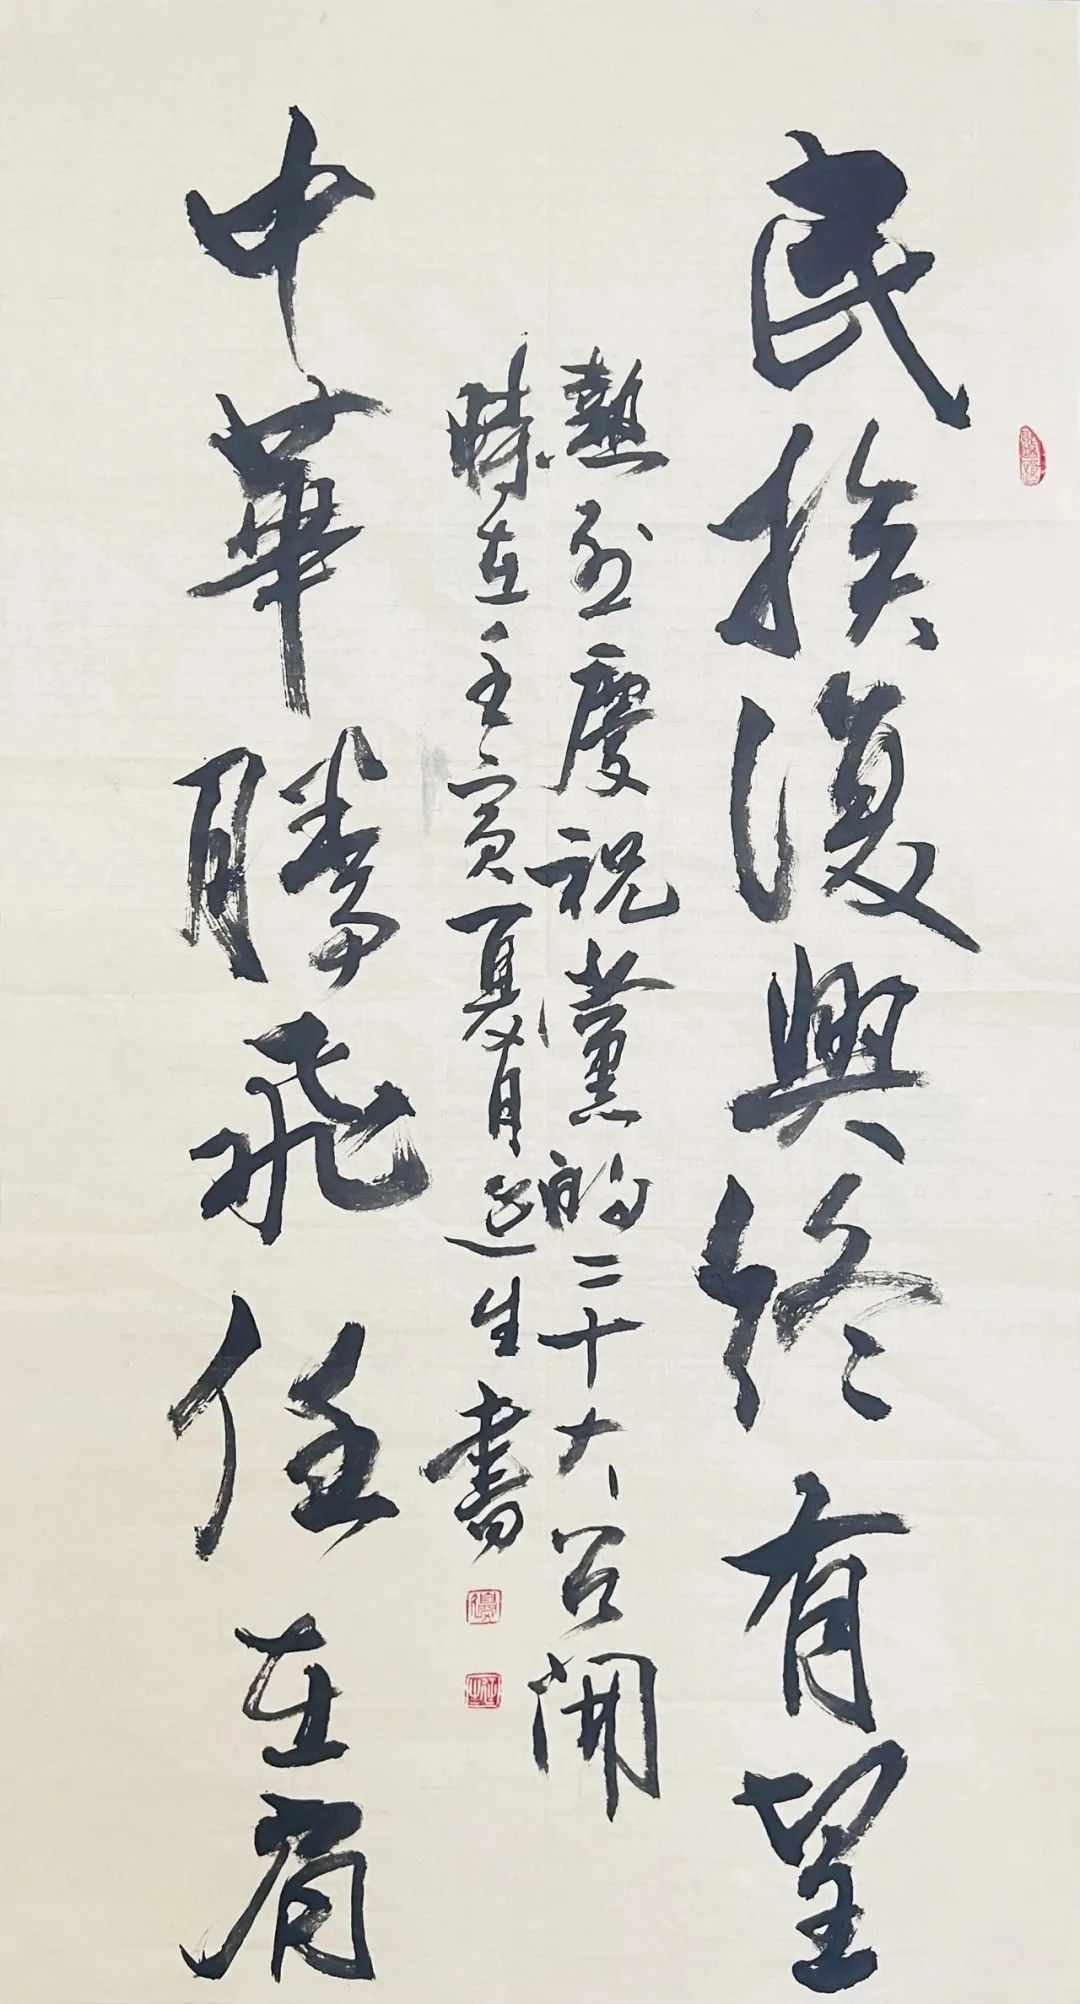 民族復興終有望
中華騰飛任在肩
熱烈慶祝黨的二十大召開
時在壬寅夏月延生書